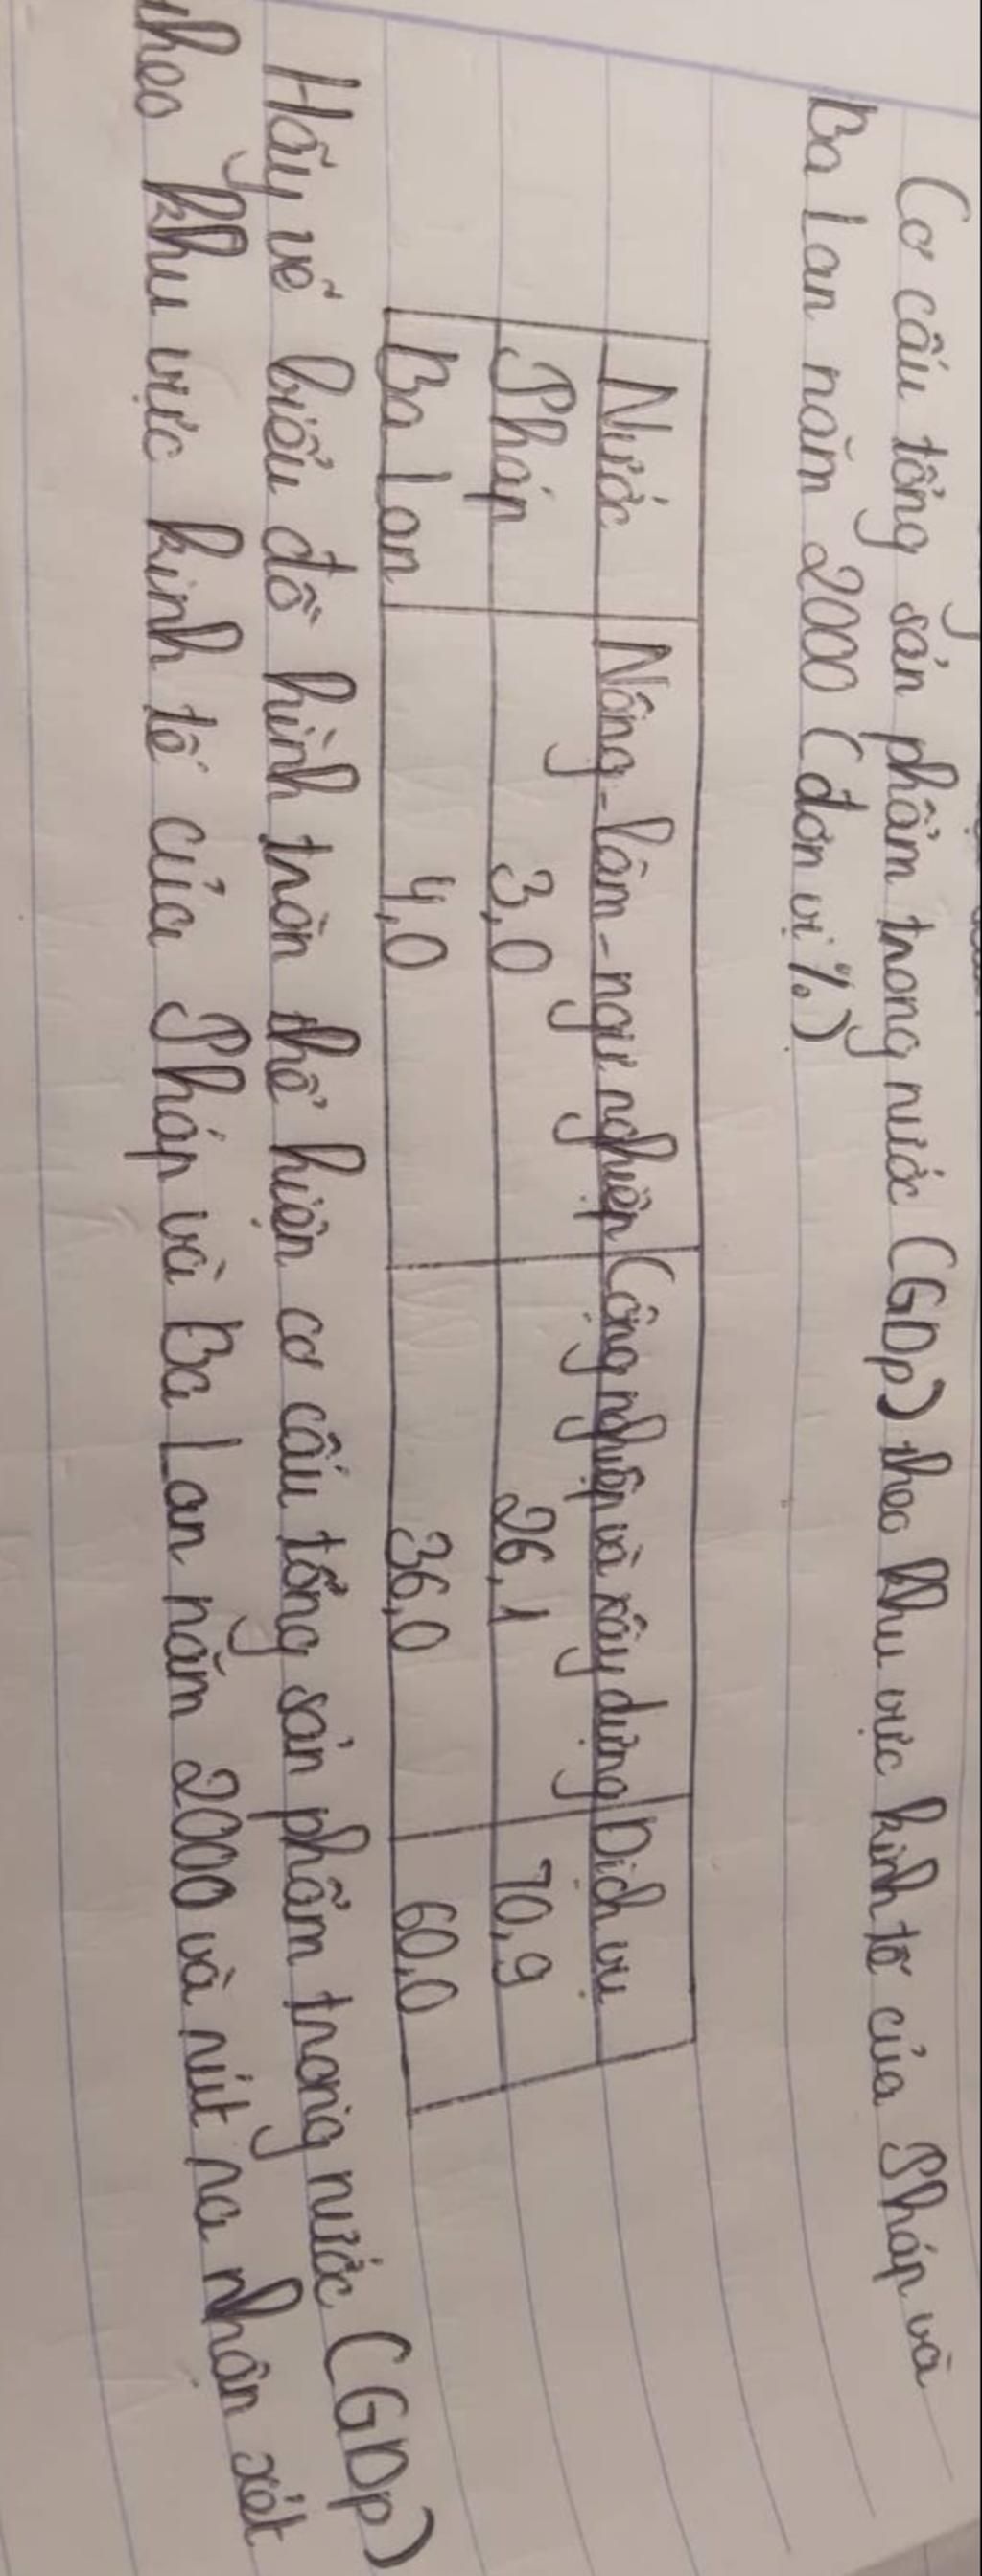 Cơ cấu tổng sản phẩm trong nước (GDP) theo khu vực kinh tế của Pháp và
Ba Lan năm 2000 (đơn vị %)
Nước Nông-lâm-ngư nghiệp Công nghiệp và xây dựng Dịch vụ
Pháp 3,0 26,1 70,9
Ba Lan 4,0 36,0 60,0
Hãy vẽ biểu đồ hình tròn thể hiện cơ cấu tổng sản phẩm trong nước (GDP)
theo khu vực kinh tế của Pháp và Ba Lan năm 2000 và rút ra nhận xét